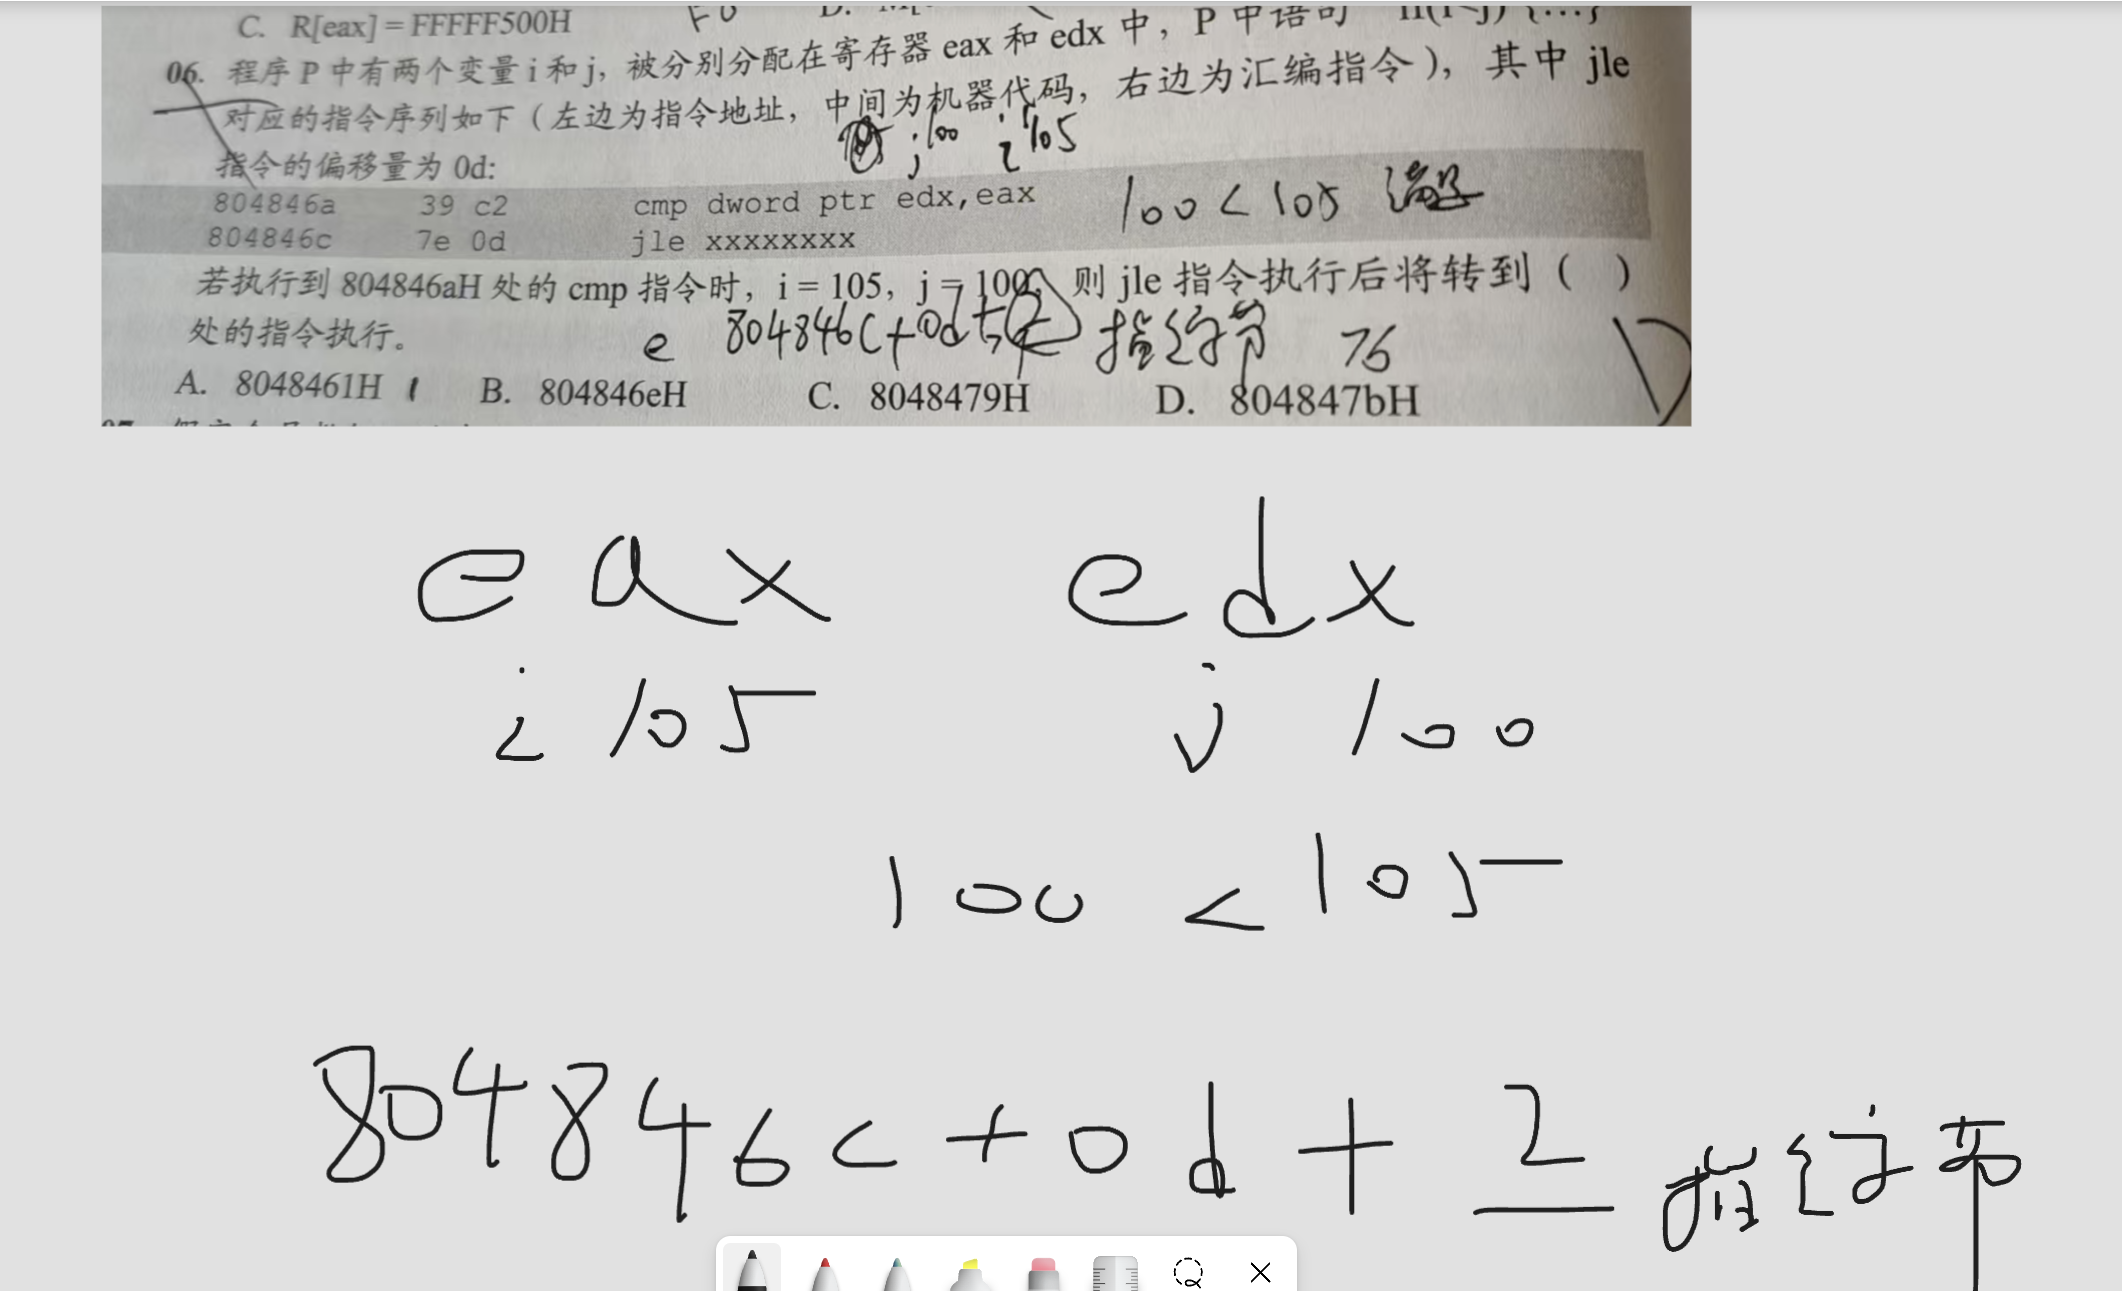 C. R[eax] = FFFFF500H
06. 程序 P 中有两个变量 i 和 j，被分别分配在寄存器 eax 和 edx 中，P 中语句 "if(i<j) {…}"
对应的指令序列如下（左边为指令地址，中间为机器代码，右边为汇编指令），其中 jle
j 100 i 105
指令的偏移量为 0d:
804846a 39 c2 cmp dword ptr edx,eax
100 < 105 满足
804846c 7e 0d jle xxxxxxxx
若执行到 804846aH 处的 cmp 指令时，i = 105，j = 100，则 jle 指令执行后将转到（ ）
处的指令执行。
e 804846c+0d+2 指令字节 76
A. 8048461H B. 804846eH C. 8048479H D. 804847bH
D
eax edx
i 105 j 100
100 < 105
804846c + 0d + 2 指令字节